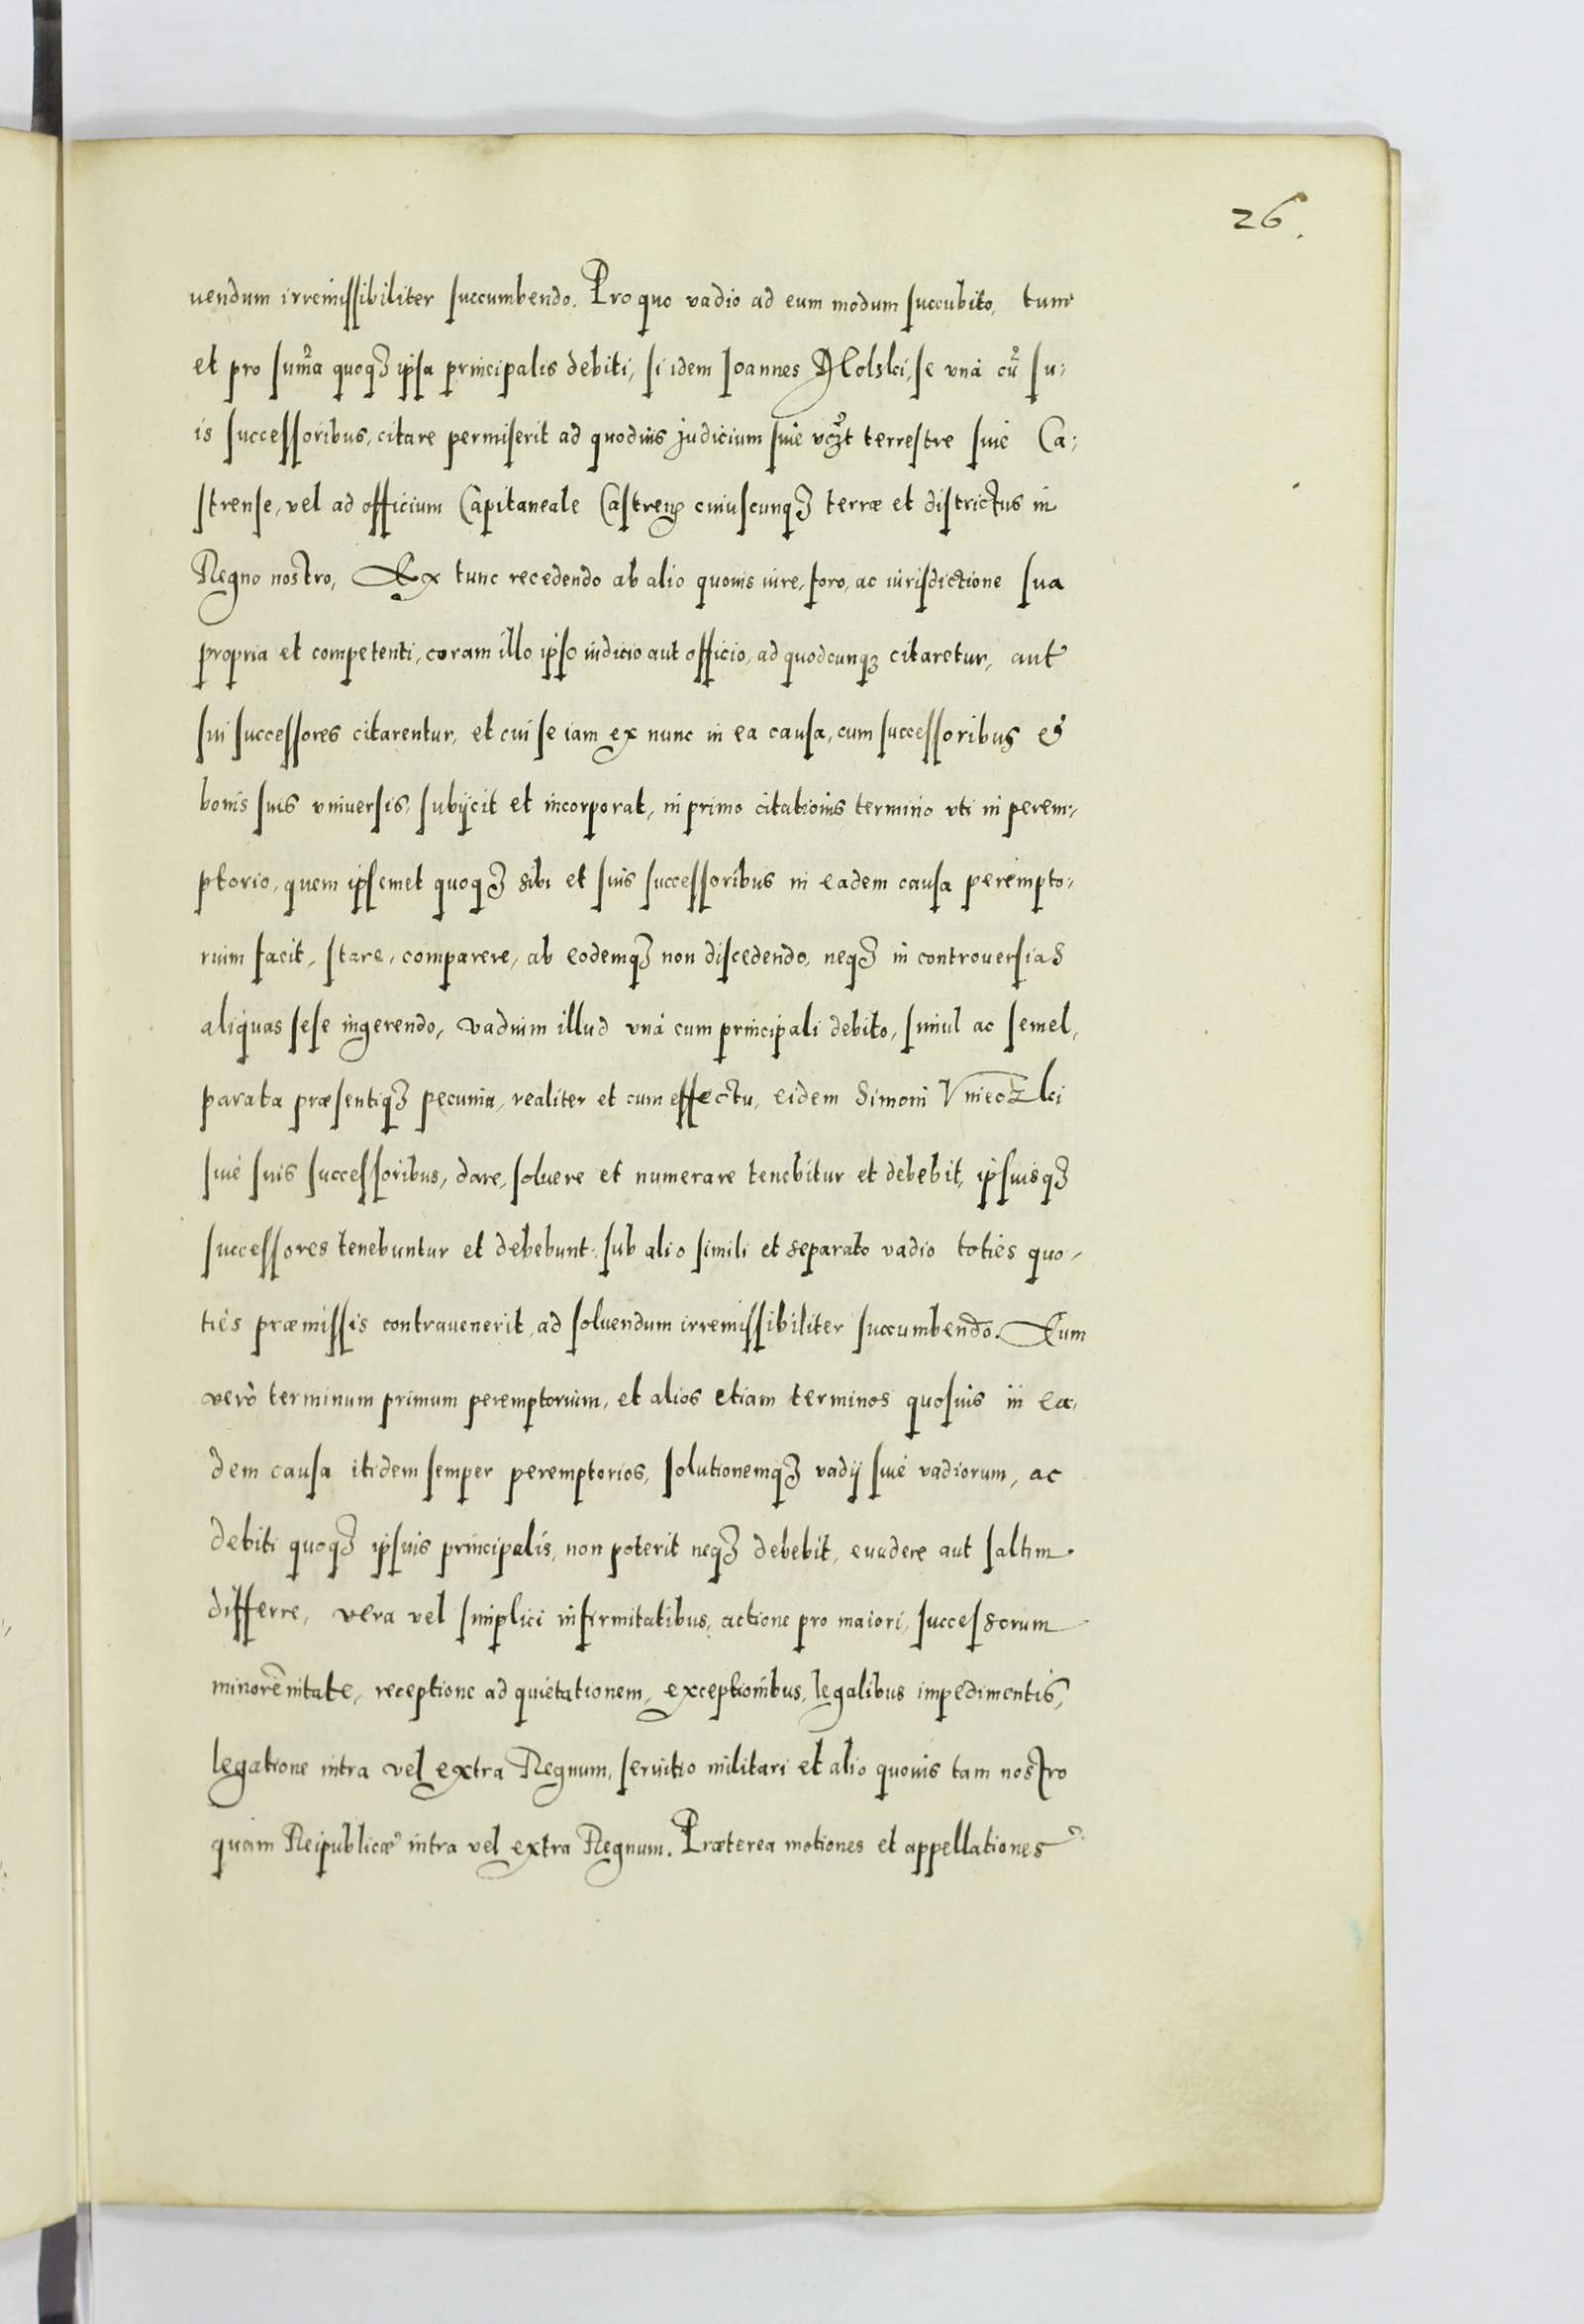 26.
uendum irremissibiliter succumbendo. Pro quo vadio ad eum modum succubito, tum
et pro sum̃a quoqꝫ ipsa principalis debiti, si idem Joannes se vnà cũ su:
is successoribus, citare permiserit ad quoduis judicium siue terrestre siue Ca:
strense, vel ad officium Capitaneale Castren̄ cuiuscunqꝫ terræ et districtus in
Regno nostro, Ex tunc recedendo ab alio quouis iure, foro, ac iurisdictione sua
propria et competenti, coram illo ipso iudicio aut officio, ad quodcunqꝫ citaretur, aut
sui successores citarentur, et cui se iam ex nunc in ea causa, cum successoribus et
bonis suis vniuersis, subijcit et incorporat, in primo citationis termino vti in perem:
ptorio, quem ipsemet quoqꝫ sibi et suis successoribus in eadem causa perempto:
rium facit, stare, comparere, ab eodemqꝫ non discedendo, neqꝫ in controuersias
aliquas sese ingerendo, vadium illud vnà cum principali debito, simul ac semel,
parata præsentiqꝫ pecunia, realiter et cum effectu, eidem Simoni Vnieczki
siue suis successoribus, dare, soluere et numerare tenebitur et debebit, ipsiusqꝫ
successores tenebuntur et debebunt: sub alio simili et separato vadio toties quo,
ties præmissis contrauenerit, ad soluendum irremissibiliter succumbendo. Eum
verò terminum primum peremptorium, et alios etiam terminos quosuis in ea,
dem causa itidem semper peremptorios, solutionemqꝫ vadij siue vadiorum, ac
debiti quoqꝫ ipsius principalis, non poterit neqꝫ debebit, euadere aut saltim
differre, vera vel simplici infirmitatibus, actione pro maiori, successorum
minorēnitate, receptione ad quietationem, exceptionibus, legalibus impedimentis,
legatione intra vel extra Regnum, seruitio militari et alio quouis tam nostro
quàm Reipublicæ intra vel extra Regnum. Præterea motiones et appellationes